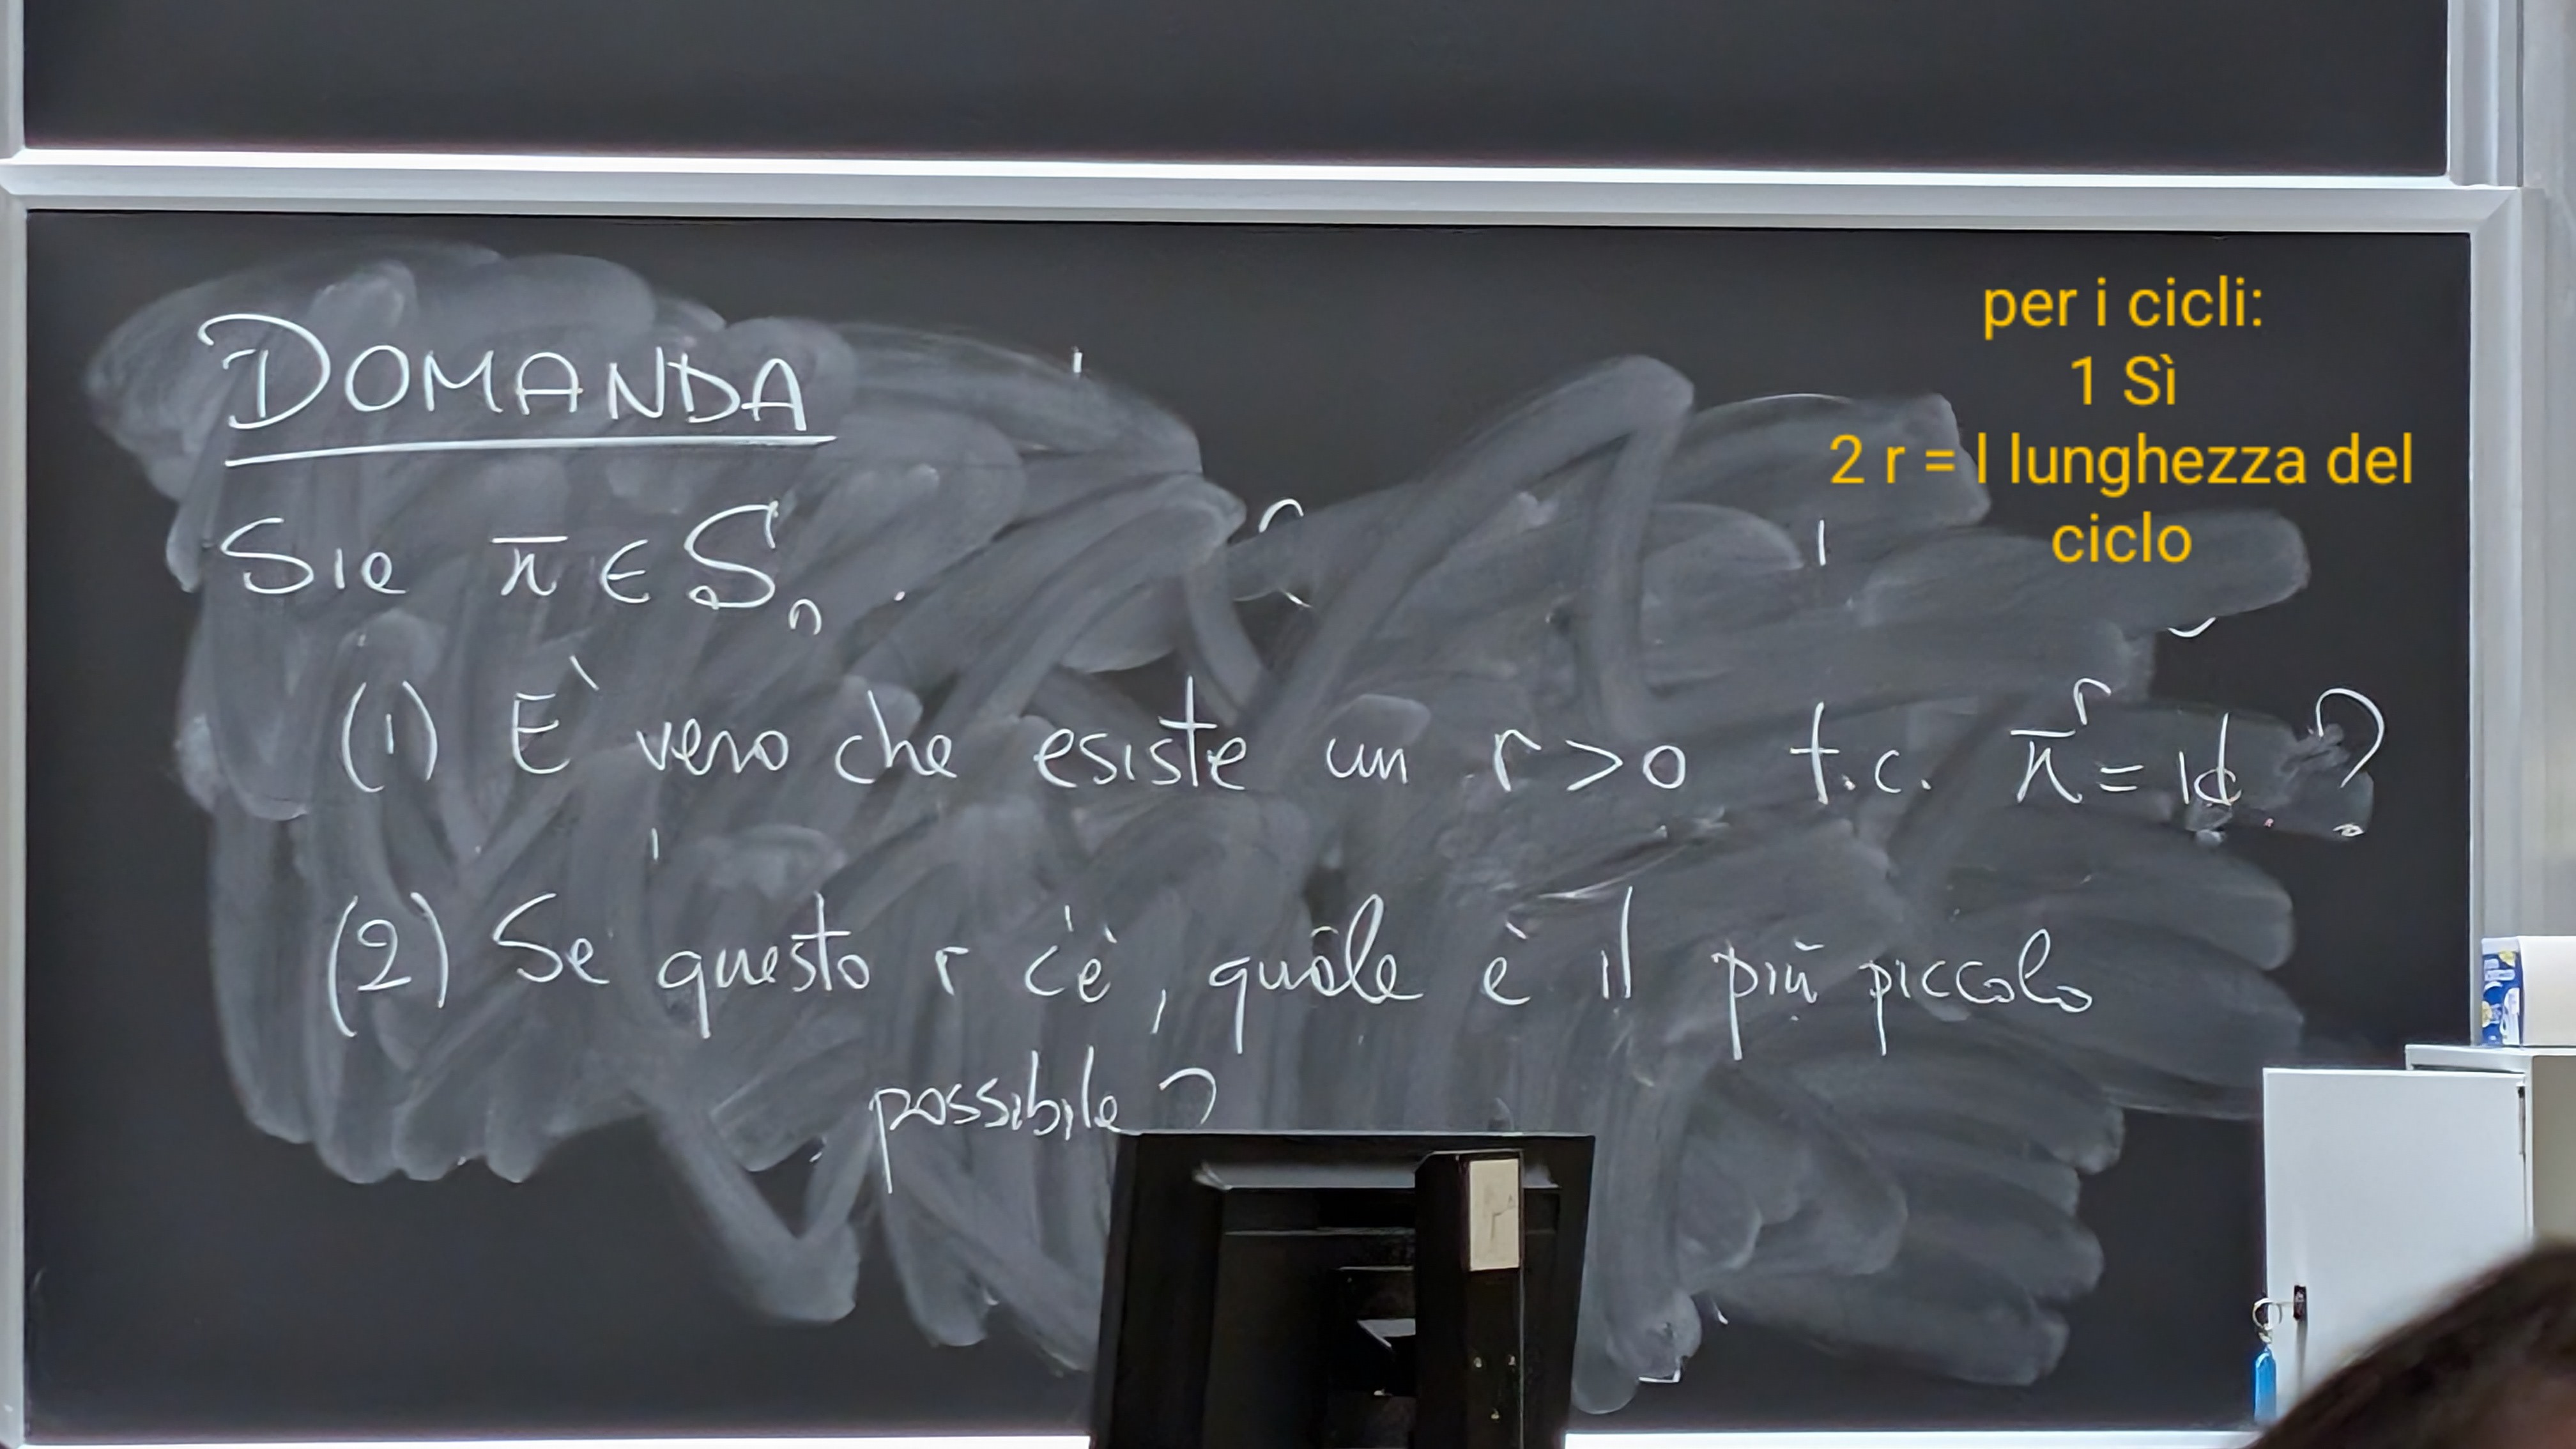 DOMANDA
Sia π ∈ Sₙ.
(1) E` vero che esiste un r > 0 t.c. πʳ = id ?
(2) Se questo r c'è, quale è il più piccolo
possibile ?
per i cicli:
1 Sì
2 r = l lunghezza del
ciclo